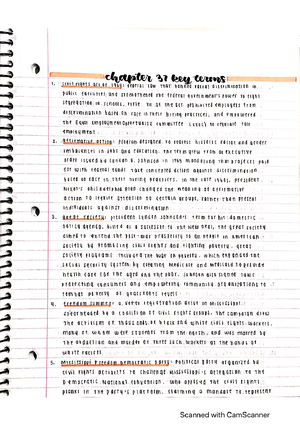 chapter 37 key terms
1. Civil Rights Act of 1964: federal law that banned racial discrimination in
public facilities and strengthened the federal government's power to fight
segregation in schools. Title VII of the act prohibited employers from
discriminating based on race in their hiring practices, and empowered
the Equal Employment Opportunity Committee (EEOC) to regulate fair
employment.
2. Affirmative Action: program designed to redress historic racial and gender
imbalances in jobs and education. The term grew from an executive
order issued by Lyndon B. Johnson in 1965 mandating that projects paid
for with federal funds take concerted action against discrimination
based on race in their hiring practices. In the late 1960s, President
Nixon's Philadelphia Plan changed the meaning of affirmative
action to require attention to certain groups, rather than protect
individuals against discrimination.
3. Great Society: President Lyndon Johnson's term for his domestic
policy agenda. Billed as a successor to the New Deal, the Great Society
aimed to extend the postwar prosperity to all people in American
society by promoting civil rights and fighting poverty. Great
Society programs included the War on Poverty, which expanded the
Social Security system by creating Medicare and Medicaid to provide
health care for the aged and the poor. Johnson also signed laws
protecting consumers and empowering community organizations to
combat poverty at grassroots levels.
4. Freedom Summer: a voter registration drive in Mississippi
spearheaded by a coalition of civil rights groups. The campaign drew
the activism of thousands of black and white civil rights workers,
many of whom were students from the north, and was marred by
the abduction and murder of three such workers at the hands of
white racists.
5. Mississippi Freedom Democratic Party: political party organized by
civil rights activists to challenge Mississippi's delegation to the
Democratic National Convention, who opposed the civil rights
planks in the party's platform. Claiming a mandate to represent
Scanned with CamScanner